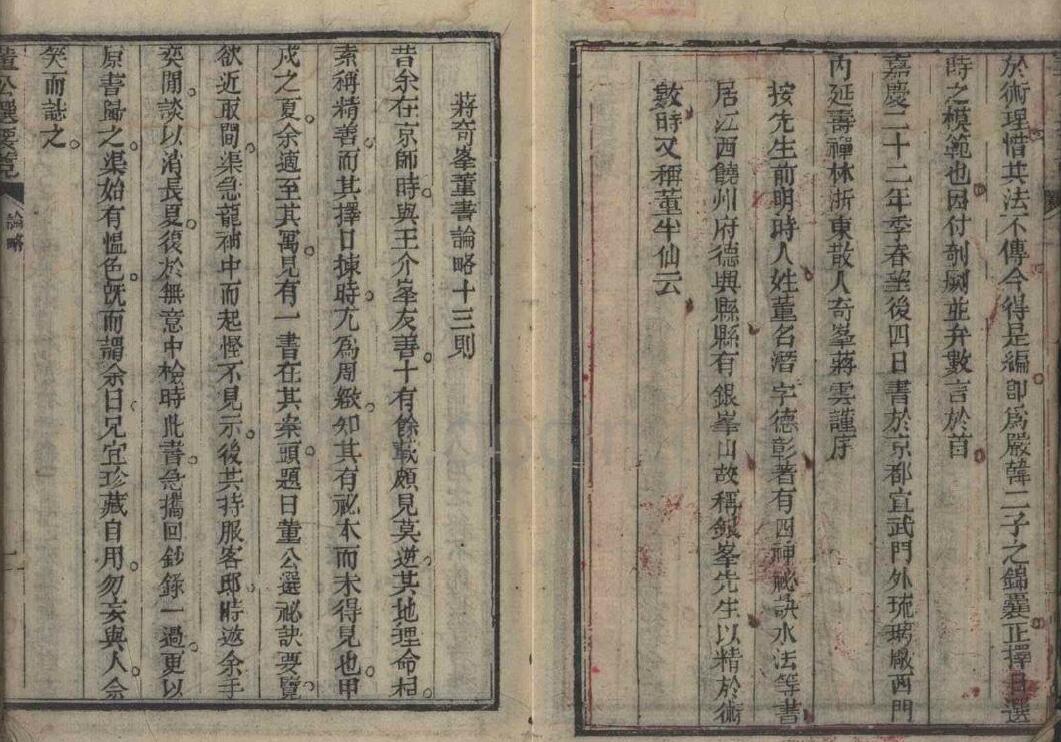 於術理惜其法不傳今得是編卽爲嚴韓二子之錦囊正擇日選
時之模範也因付剞劂並弁數言於首
嘉慶二十二年季春望後四日書於京都宣武門外琉璃厰西門
內延壽禪林浙東散人奇峯蔣雲謹序
按先生前明時人姓董名潛字德彰著有四神祕訣水法等書
居江西饒州府德興縣縣有銀峯山故稱銀峯先生以精於術
數時又稱董半仙云
蔣奇峯董書論略十三則
昔余在京師時與王介峯友善十有餘載頗見莫逆其地理命相
素稱精善而其擇日揀時尤爲周緻知其有祕本而未得見也甲
戌之夏余適至其寓見有一書在其案頭題曰董公選祕訣要覽
欲近取閱渠急龍袖中而起慳不見示後其持服客邸時邀余手
奕閒談以消長夏復於無意中檢時此書急攜回鈔錄一過更以
原書歸之渠始有慍色旣而謂余曰兄宜珍藏自用勿妄與人余
笑而誌之
董公選要覽 論略